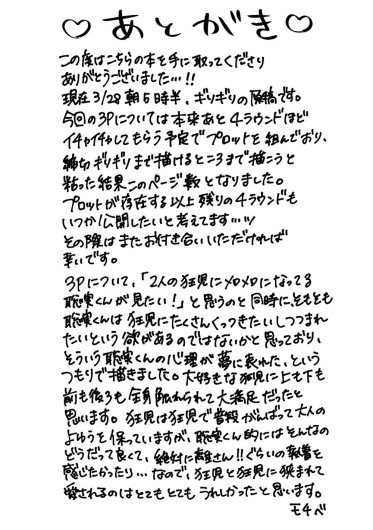 ♡あとがき♡
この度はこちらの本を手に取ってくださり
ありがとうございました…!!
現在3/28朝5時半、ギリギリの原稿です。
今回の3Pについては本来あと4ラウンドほど
イチャイチャしてもらう予定でプロットを組んでおり、
締切ギリギリまで描けるところまで描こうと
粘った結果このページ数となりました。
プロットが存在する以上残りの4ラウンドも
いつか公開したいと考えてます…ッッ
その際はまたお付き合いいただければ
幸いです。
3Pについて、「2人の狂児にメロメロになってる
聡実くんが見たい!」と思うのと同時に、そもそも
聡実くんは狂児にたくさんくっつきたいしつつまれ
たいという欲があるのではないかと思っており、
そういう聡実くんの心理が夢に表れた、という
つもりで描きました。大好きな狂児に上も下も
前も後ろも全身触れられて大満足だったと
思います。狂児は狂児で普段がんばって大人の
よゆうを保っていますが、聡実くん的にはそんなの
どうだって良くて、絶対に離さん!!ぐらいの執着を
感じたかったり…なので、狂児と狂児に挟まれて
愛されるのはとてもとてもうれしかったと思います。
モチベ